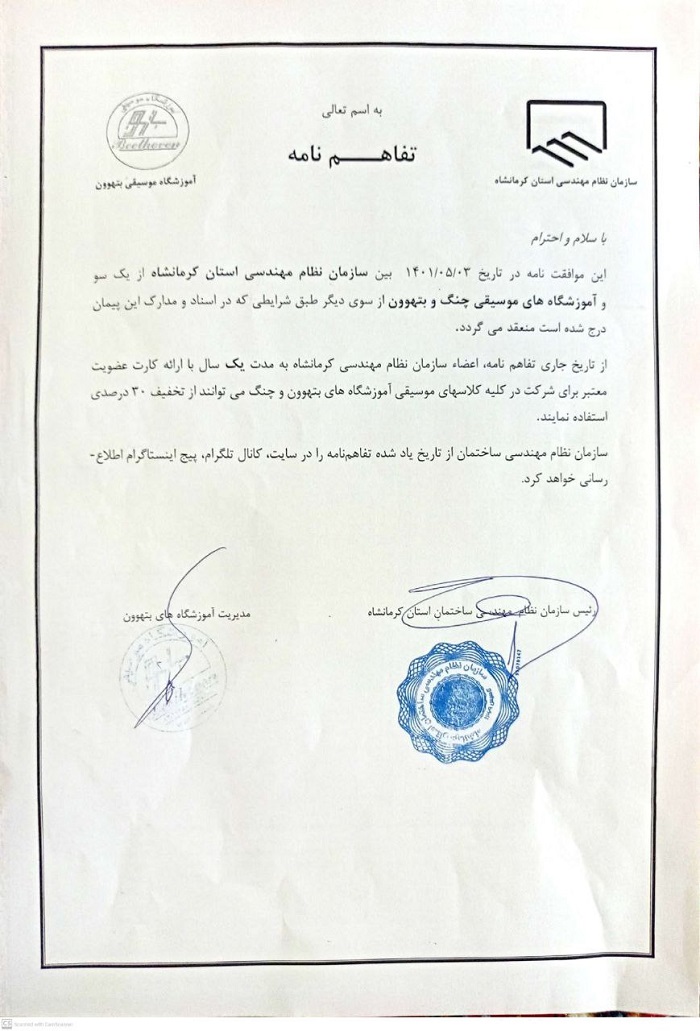 به اسم تعالی
تفاهـــــم نامه
Beethoven
آموزشگاه موسیقی بتهوون
سازمان نظام مهندسی استان کرمانشاه
با سلام و احترام
این موافقت نامه در تاریخ ۱۴۰۱/۰۵/۰۳ بین سازمان نظام مهندسی استان کرمانشاه از یک سو
و آموزشگاه های موسیقی چنگ و بتهوون از سوی دیگر طبق شرایطی که در اسناد و مدارک این پیمان
درج شده است منعقد می گردد.
از تاریخ جاری تفاهم نامه، اعضاء سازمان نظام مهندسی کرمانشاه به مدت یک سال با ارائه کارت عضویت
معتبر برای شرکت در کلیه کلاسهای موسیقی آموزشگاه های بتهوون و چنگ می توانند از تخفیف ۳۰ درصدی
استفاده نمایند.
سازمان نظام مهندسی ساختمان از تاریخ یاد شده تفاهم‌نامه را در سایت، کانال تلگرام، پیج اینستاگرام اطلاع-
رسانی خواهد کرد.
رئیس سازمان نظام مهندسی ساختمان استان کرمانشاه
مدیریت آموزشگاه های بتهوون
سازمان نظام مهندسی ساختمان استان کرمانشاه
CS Scanned with CamScanner